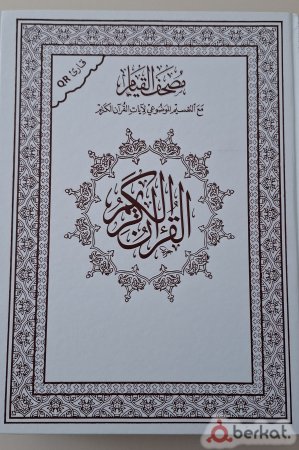 قارئ QR
مصحف القيام
مع التقسيم الموضوعي لآيات القرآن الكريم
القرآن الكريم
berkat.